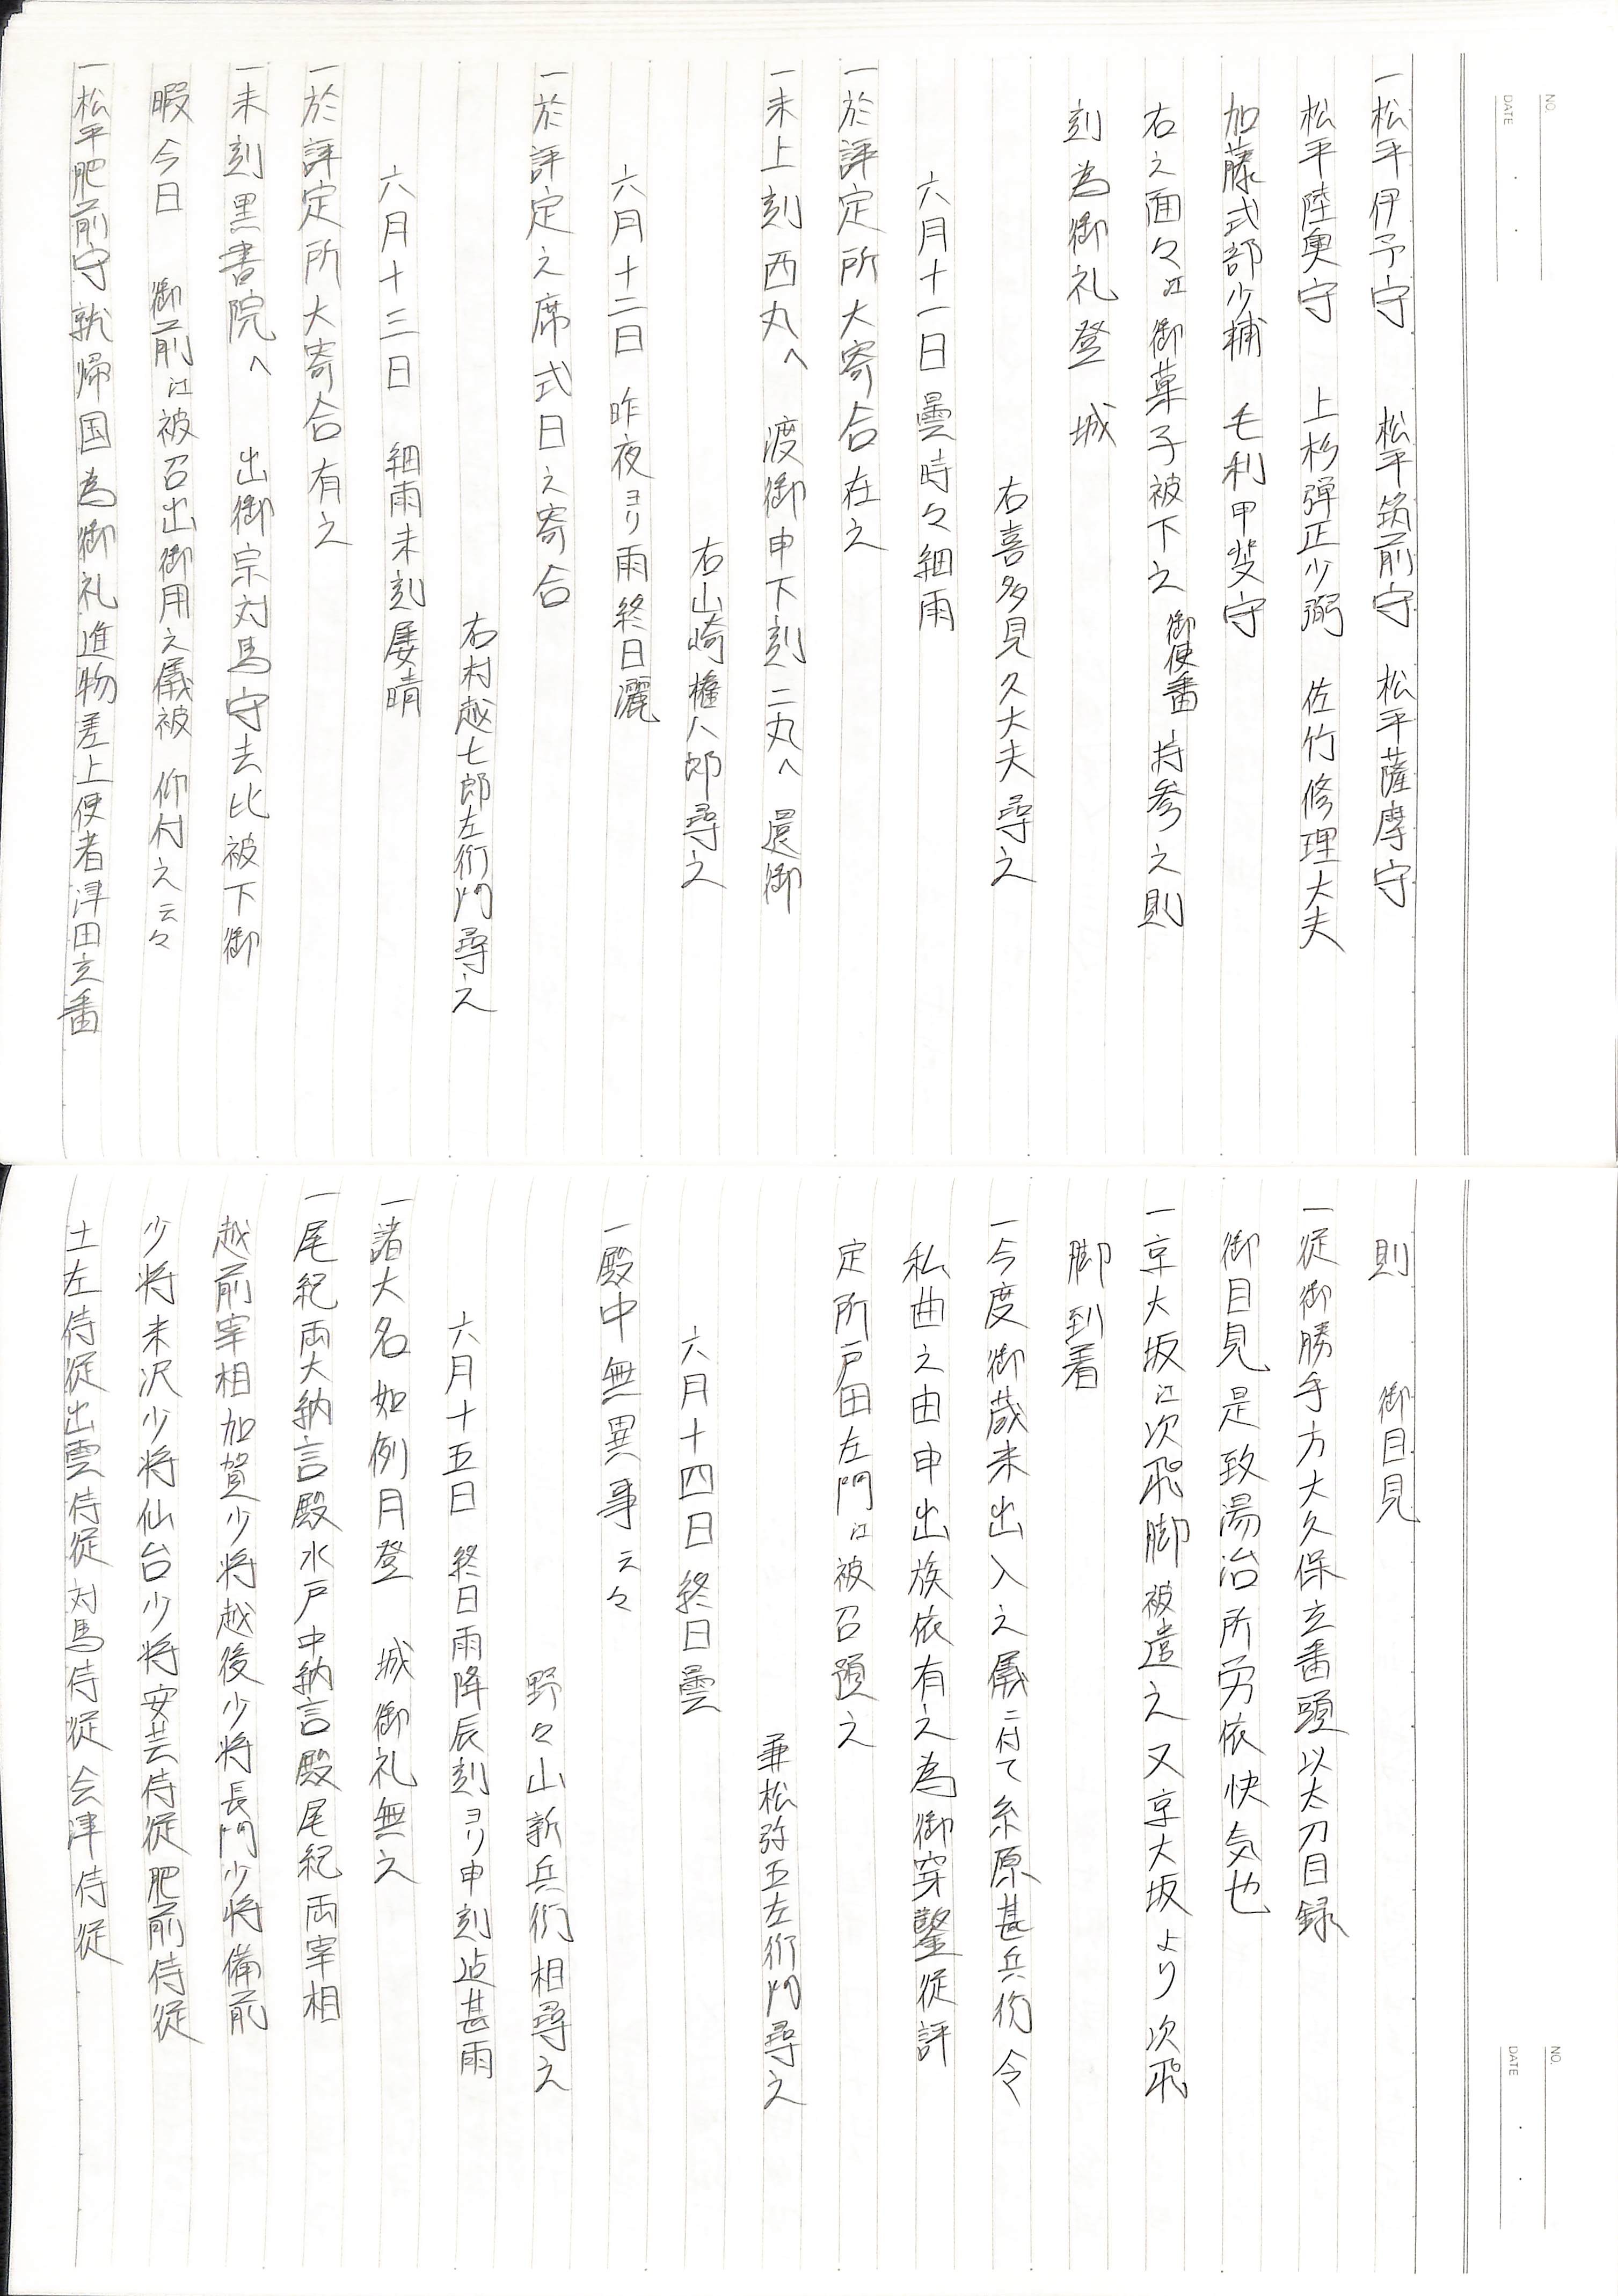 NO.
DATE
一松平伊予守　松平筑前守　松平薩摩守
松平陸奥守　上杉弾正少弼　佐竹修理大夫
加藤式部少輔　毛利甲斐守
右之面々江御菓子被下之　御使番　持参之則
刻為御礼登　城
右喜多見久大夫尋之
六月十一日曇時々細雨
一於評定所大寄合在之
一未上刻西丸へ　渡御申下刻二丸へ　還御
右山崎権八郎尋之
六月十二日　昨夜ヨリ雨終日灑
一於評定之席式日之寄合
右村越七郎左衛門尋之
六月十三日　細雨未刻属晴
一於評定所大寄合有之
一未刻黒書院へ　出御宗対馬守去比被下御
暇今日　御前江被召出御用之儀被　仰付之云々
一松平肥前守就帰国為御礼進物差上使者津田玄番
NO.
DATE
則　御目見
一従御勝手方大久保玄番頭以太刀目録
御目見是致湯治所労依快気也
一京大坂江次飛脚被遣之又京大坂より次飛
脚到着
一今度御蔵米出入之儀ニ付て糸原甚兵衛令
私曲之由申出族依有之為御穿鑿従評
定所戸田左門江被召預之
兼松弥五左衛門尋之
六月十四日終日曇
一殿中無異事云々
野々山新兵衛相尋之
六月十五日　終日雨降辰刻ヨリ申刻迠甚雨
一諸大名如例月登　城御礼無之
一尾紀両大納言殿水戸中納言殿尾紀両宰相
越前宰相加賀少将越後少将長門少将備前
少将米沢少将仙台少将安芸侍従肥前侍従
土左侍従出雲侍従対馬侍従会津侍従